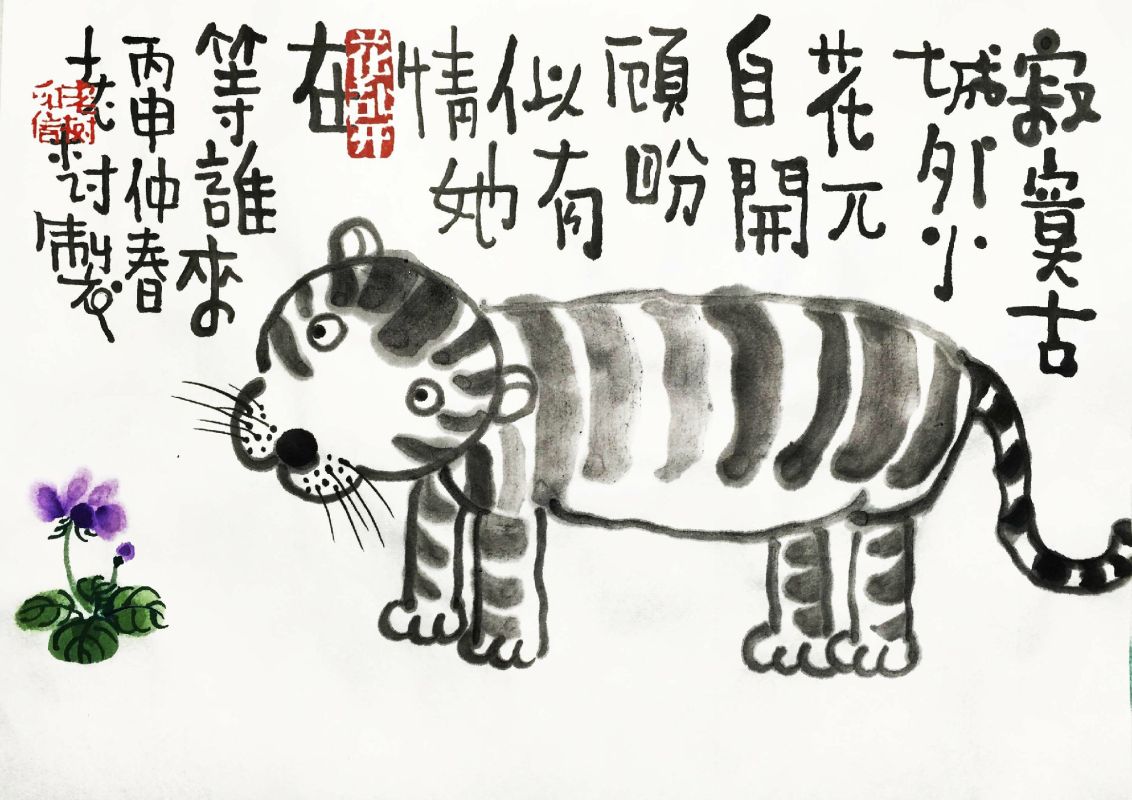 寂寞古
城外小
花兀
自開
顧盼
似有
情她
在
花都开
等誰來
丙申仲春
老樹製